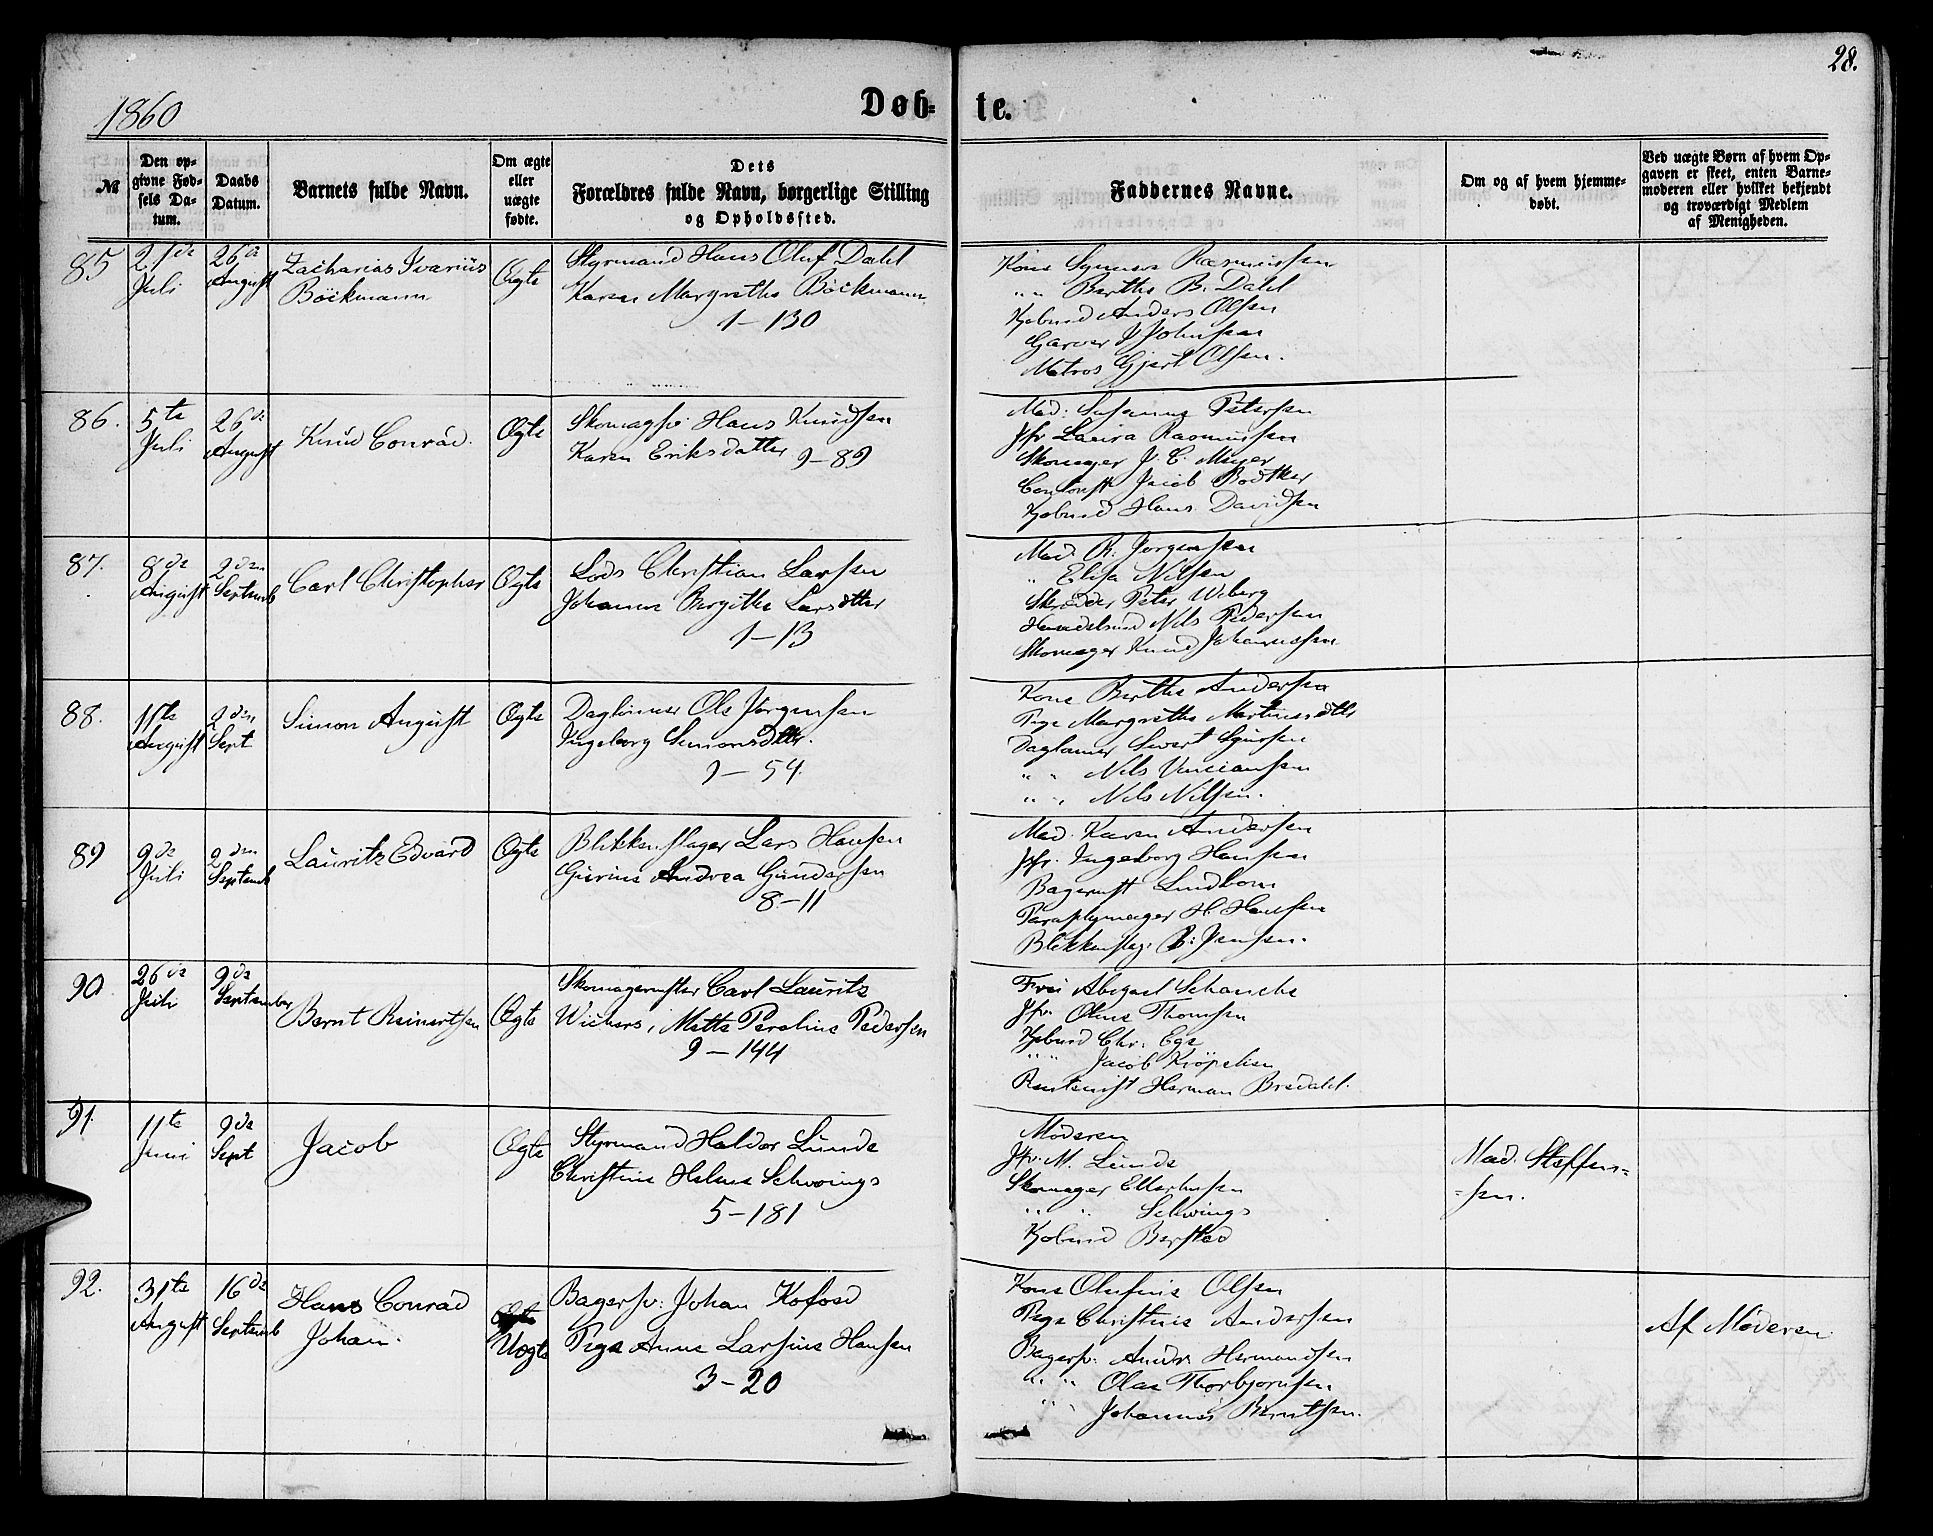 28.
1860
Døb-te.
№
Den op-
givne Fød-
sels Da-
tum.
Daabs
Datum.
Barnets fulde Navn.
Om ægte
eller
uægte
fødte.
Dets
Forældres fulde Navn, borgerlige Stilling
og Opholdssted.
Faddernes Navne.
Om og af hvem hjemme-
døbt.
Ved uægte Børn af hvem Op-
gaven er skeet, enten Barne-
moderen eller hvilket bekjendt
og troværdigt Medlem
af Menigheden.
85
21de
Juli
26de
August
Zacharias Ivarius
Böckmann
Ægte
Styrmand Hans Oluf Dahl
Karen Margrethe Böckmann
1-130
Kone Rasmussen
" " Berthe B. Dahl
Kjøbmd Anders Olsen
Garver J Johnsen
Matros Gjert Olsen.
86.
5te
Juli
26de
August
Knud Conrad.
Ægte
Skomagsv Hans Knudsen
Karen Eriksdatter 9-89
Mad: Susanne Petersen
Jfr Laura Rasmussen
Skomager J. C. Meyer
Jacob Bødtker
Kjøbmd Hans Davidsen
87.
8de
August
2den
Septemb
Carl Christopher
Ægte
Lods Christian Larsen
Johanne Birgithe Larsdtter
1-13
Mad. R. Jørgensen
" Elisa Nilsen
Skrædder Peter Wiberg
Handelsmd Nils Pedersen
Skomager Knud Johannesen
88.
11te
August
2den
Sept
Simon August
Ægte
Daglønner Ole Jörgensen
Ingeborg Simonsdtter.
9-54.
Kone Berthe Andersen
Pige Margrethe Martinusdtter
Daglønner Sivert
" " Nils
" " Nils Nilsen.
89
9de
Juli
2den
Septemb
Lauritz Edvard
Ægte
Blikkenslager Lars Hansen
Gurine Andrea Gundersen
8-11
Mad. Karen Andersen
Jfr. Ingeborg Hansen
Bagermst Lindbom
Paraplymager H. Hansen
Blikkenslag. B. Jensen.
90
26de
Juli
9de
September
Bernt Reinertsen
Ægte
Skomagermster Carl Lauritz
Wichers, Mette Pereline Pedersen
9-144
Frü Abigael Schanche
Jfr. Oline Thomsen
Kjøbmd Chr. Ege
" " Jacob Kröpelien
Herman Bredahl.
91.
11te
Juni
9de
Sept
Jacob
Ægte
Styrmand Haldor Lunde
Christine Helene Schwings
5-181
Moderen
Jfr. M. Lunde
Skomager Ellerhusen
" " Schwings
Kjøbmd Berstad
Mad. Steffen=
=sen.
92.
31te
August
16de
Septemb
Hans Conrad
Johan.
Uægte
Bagersv. Johan Kofoed
Pige Anne Larsine Hansen
3-20
Kone Olufine Olsen
Pige Christine Andersen
Bagersv. Andr. Hermandsen
" " Olaus Thorbjornsen
" " Johannes Berntsen.
Af Moderen.